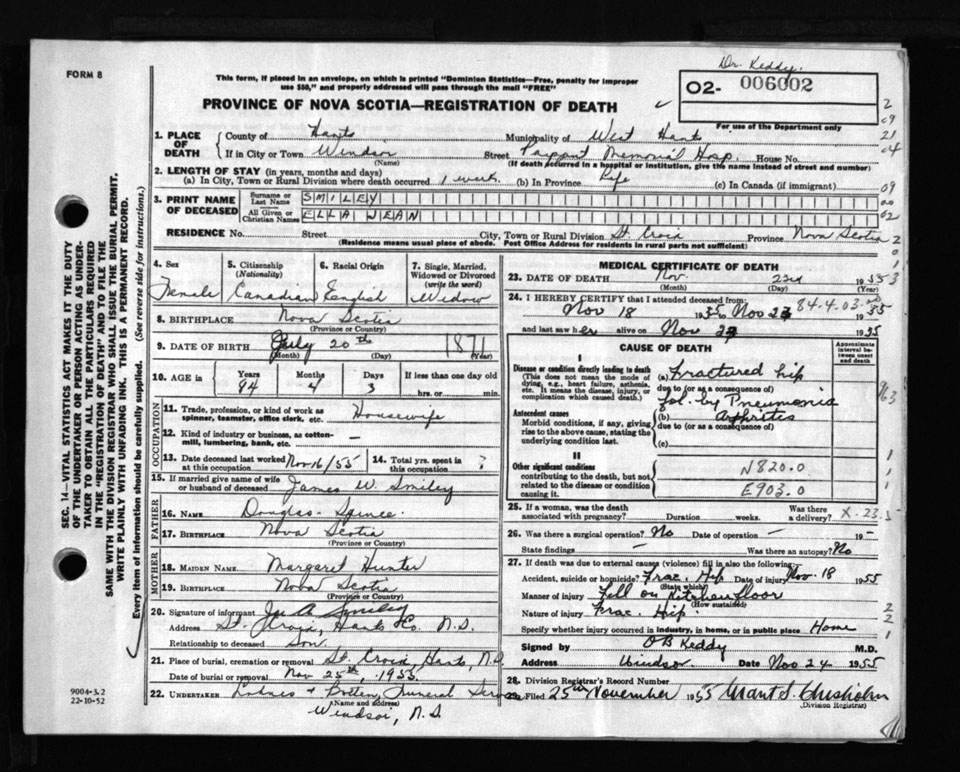 FORM 8
Dr. Keddy.
This form, if placed in an envelope, on which is printed "Dominion Statistics—Free, penalty for improper
use $50," and properly addressed will pass through the mail "FREE"
02- 006002
PROVINCE OF NOVA SCOTIA—REGISTRATION OF DEATH
For use of the Department only
1. PLACE OF DEATH
County of Hants Municipality of West Hants
If in City or Town Windsor Street Payzant Memorial Hosp. House No.
(Name) (If death occurred in a hospital or institution, give the name instead of street and number)
2. LENGTH OF STAY (in years, months and days)
(a) In City, Town or Rural Division where death occurred 1 week. (b) In Province Life (c) In Canada (if immigrant)
3. PRINT NAME OF DECEASED
Surname or Last Name SMILEY
All Given or Christian Names ELLA JEAN
RESIDENCE No. Street City, Town or Rural Division St. Croix Province Nova Scotia
(Residence means usual place of abode. Post Office Address for residents in rural parts not sufficient)
4. Sex Female
5. Citizenship (Nationality) Canadian
6. Racial Origin English
7. Single, Married, Widowed or Divorced (write the word) Widow
8. BIRTHPLACE Nova Scotia
(Province or Country)
9. DATE OF BIRTH July 20th 1871
(Month) (Day) (Year)
10. AGE in Years Months Days If less than one day
84 4 3 hrs. or min.
OCCUPATION
11. Trade, profession, or kind of work as spinner, teamster, office clerk, etc. Housewife
12. Kind of industry or business, as cotton-mill, lumbering, bank, etc. —
13. Date deceased last worked at this occupation Nov 16/55
14. Total yrs. spent in this occupation ?
15. If married give name of wife or husband of deceased James W. Smiley
FATHER
16. NAME Douglas Spence
17. BIRTHPLACE Nova Scotia
(Province or Country)
MOTHER
18. MAIDEN NAME Margaret Hunter
19. BIRTHPLACE Nova Scotia
(Province or Country)
20. Signature of informant Smiley
Address St. Croix, Hants Co. N.S.
Relationship to deceased Son.
21. Place of burial, cremation or removal St. Croix, Hants, N.S
Date of burial or removal Nov 25th, 1955.
22. UNDERTAKER Funeral Service
(Name and address)
Windsor, N.S
MEDICAL CERTIFICATE OF DEATH
23. DATE OF DEATH Nov. 23rd 1955
(Month) (Day) (Year)
24. I HEREBY CERTIFY that I attended deceased from: 84.4.03
Nov 18 1955 to Nov 23 1955
and last saw her alive on Nov 23 1955
CAUSE OF DEATH
Approximate interval between onset and death
I
Disease or condition directly leading to death
(This does not mean the mode of dying, e.g., heart failure, asthenia, etc. It means the disease, injury, or complication which caused death.)
(a) Fractured hip
due to (or as a consequence of)
fol. by Pneumonia
Antecedent causes
Morbid conditions, if any, giving rise to the above cause, stating the underlying condition last.
(b) Arthritis
due to (or as a consequence of)
(c)
II
Other significant conditions
contributing to the death, but not related to the disease or condition causing it.
N820.0
E903.0
25. If a woman, was the death associated with pregnancy? Duration weeks. Was there a delivery? X-23.5
26. Was there a surgical operation? No Date of operation – 19–
State findings – Was there an autopsy? No
27. If death was due to external causes (violence) fill in also the following:
Accident, suicide or homicide? Frac. Hip Date of injury Nov. 18 1955
(State which)
Manner of injury Fell on kitchen floor
(How sustained)
Nature of injury Frac. Hip.
Specify whether injury occurred in industry, in home, or in public place Home
Signed by O B Keddy M.D.
Address Windsor Date Nov 24 1955
28. Division Registrar's Record Number
Filed 25th November 1955 Grant S. Chisholm
(Division Registrar)
SEC. 14—VITAL STATISTICS ACT MAKES IT THE DUTY
OF THE UNDERTAKER OR PERSON ACTING AS UNDER-
TAKER TO OBTAIN ALL THE PARTICULARS REQUIRED
IN THE "REGISTRATION OF DEATH" AND TO FILE THE
SAME WITH THE DIVISION REGISTRAR WHO SHALL ISSUE THE BURIAL PERMIT.
WRITE PLAINLY WITH UNFADING INK. THIS IS A PERMANENT RECORD.
Every item of information should be carefully supplied. (See reverse side for instructions.)
9004-3.2
22-10-52